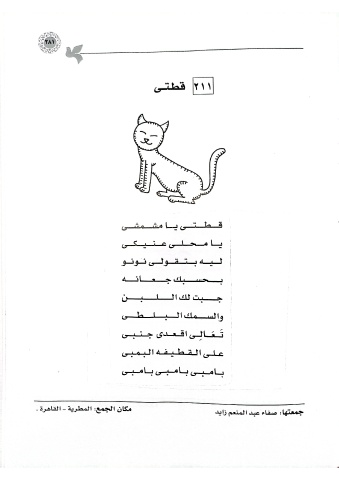 ٢٨٦
٢١١ قطتى
قطتى يا مشمشى
يا محلى عنيكى
ليه بتقولى نونو
بحسبك جعانه
جبت لك اللبن
والسمك البلطى
تَعَالِى اقعدى جنبى
على القطيفه البمبى
بامبى بامبى بامبى
جمعتها: صفاء عبد المنعم زايد
مكان الجمع: المطرية - القاهرة.